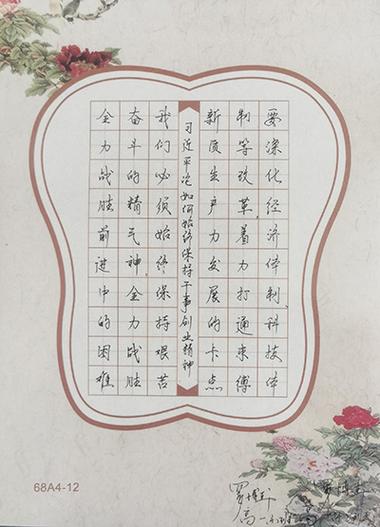 要深化经济体制、科技体
制等改革,着力打通束缚
新质生产力发展的卡点
习近平论如何始终保持干事创业精神
我们必须始终保持艰苦
奋斗的精气神全力战胜
全力战胜前进中的困难
68A4-12